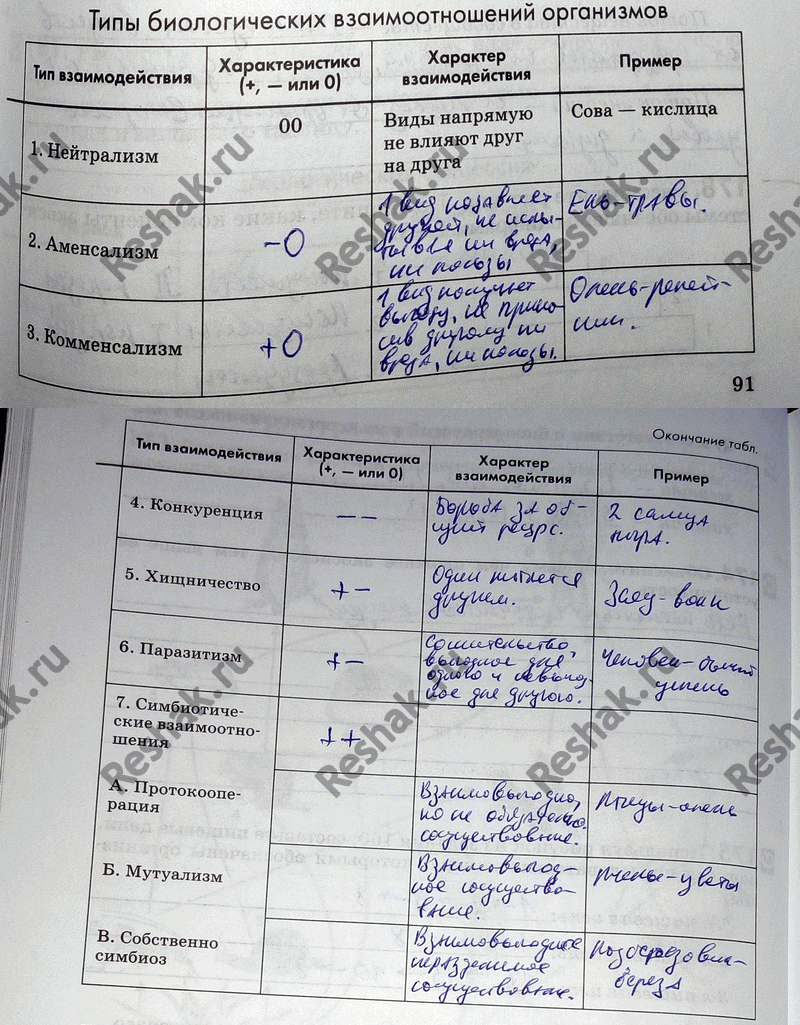 Типы биологических взаимоотношений организмов
Тип взаимодействия
Характеристика
(+, — или 0)
Характер
взаимодействия
Пример
1. Нейтрализм
00
Виды напрямую
не влияют друг
на друга
Сова — кислица
2. Аменсализм
–0
1 вид подавляет
другой, не испы-
тывая ни вреда,
ни пользы
Ель-травы.
3. Комменсализм
+0
1 вид получает
выгоду, не прино-
сив другому ни
вреда, ни пользы.
Олень-репей-
ник.
91
Окончание табл.
Тип взаимодействия
Характеристика
(+, — или 0)
Характер
взаимодействия
Пример
4. Конкуренция
– –
Борьба за об-
щий ресурс.
2 самца
5. Хищничество
+ –
Один питается
другим.
Заяц-волк
6. Паразитизм
+ –
Сожительство,
выгодное для
одного и невыгод-
ное для другого.
Человек-бычий
цепень
7. Симбиотиче-
ские взаимоотно-
шения
+ +
А. Протокоопе-
рация
Взаимовыгодно,
но не обязательно
сосуществование.
Птицы-олень
Б. Мутуализм
Взаимовыгод-
ное сосущество-
вание.
Пчелы-цветы
В. Собственно
симбиоз
Взаимовыгодное
неразделимое
сосуществование.
Подосиновик-
береза
Reshak.ru
Reshak.ru
Reshak.ru
Reshak.ru
Reshak.ru
Reshak.ru
Reshak.ru
Reshak.ru